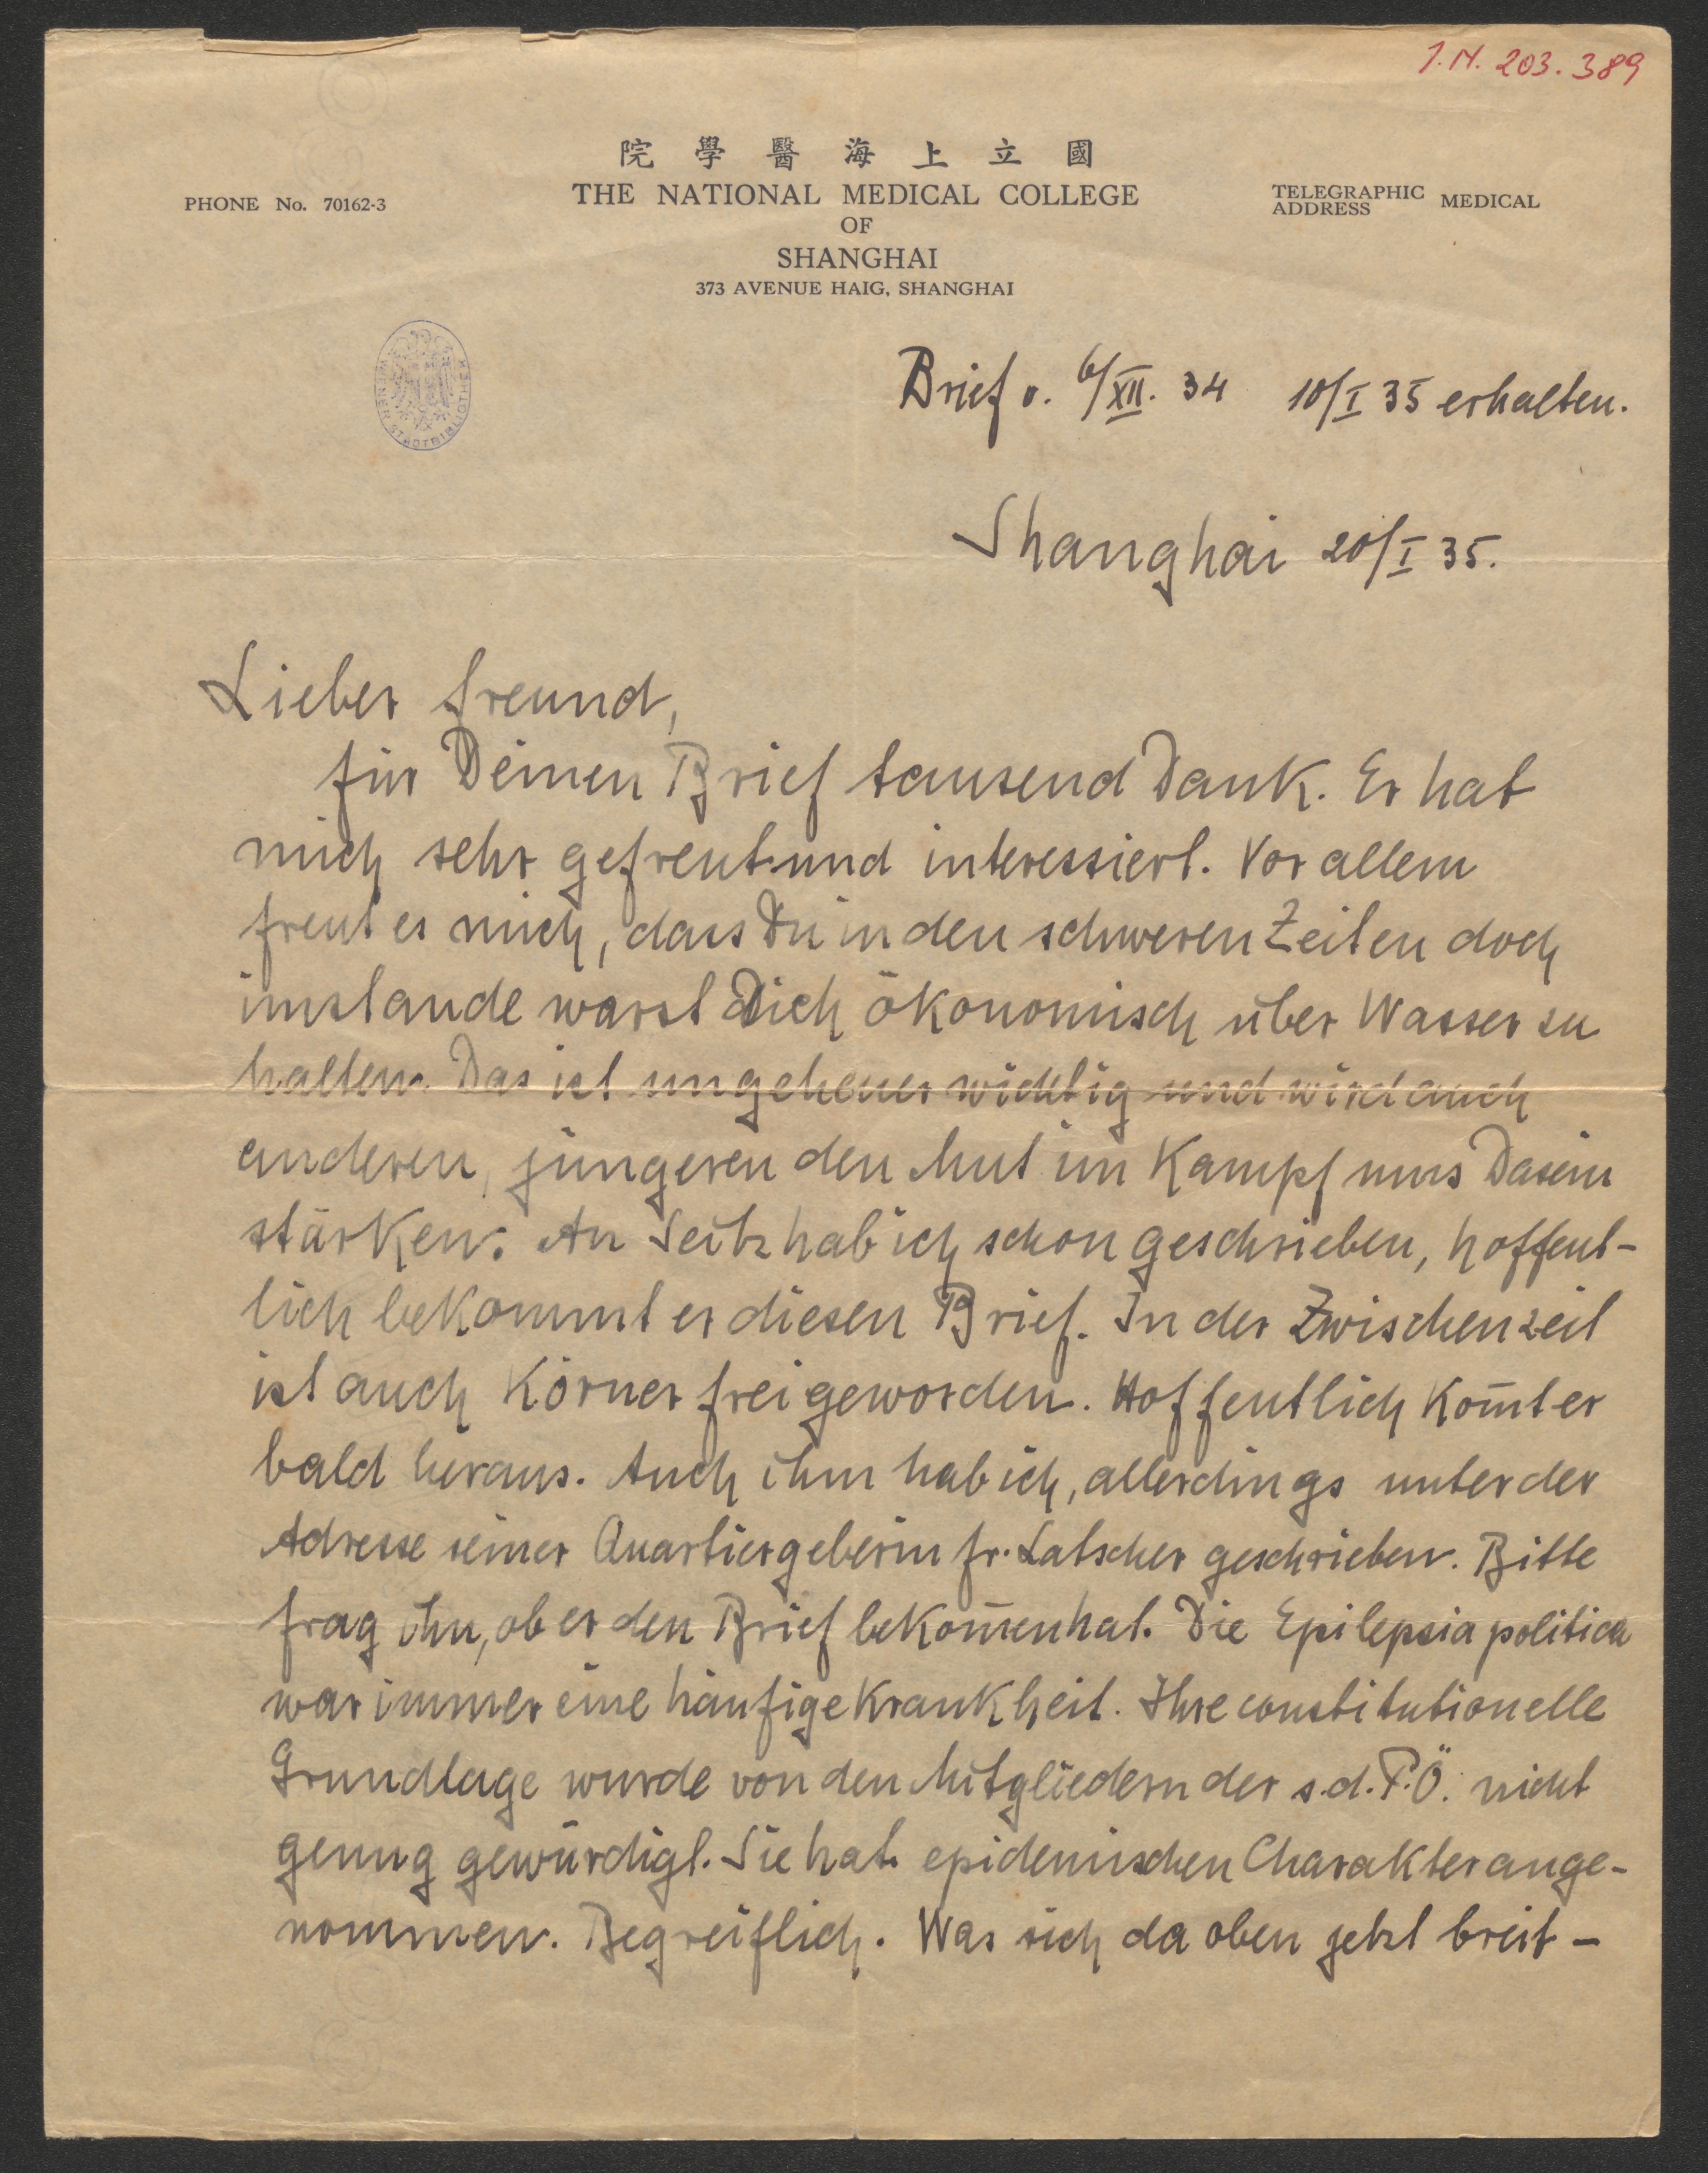 J.N. 203.389
院 學 醫 海 上 立 國
THE NATIONAL MEDICAL COLLEGE
OF
SHANGHAI
373 AVENUE HAIG, SHANGHAI
PHONE No. 70162-3
TELEGRAPHIC ADDRESS MEDICAL
WIENER STADTBIBLIOTHEK
Brief v. 6/XII. 34 10/I 35 erhalten.
Shanghai 20/I 35.
Lieber Freund,
für Deinen Brief tausend Dank. Er hat
mich sehr gefreut und interessiert. Vor allem
freut es mich, dass Du in den schweren Zeiten doch
imstande warst Dich ökonomisch über Wasser zu
halten. Das ist ungeheuer wichtig und wird auch
anderen, jüngeren den Mut im Kampf ums Dasein
stärken. An Seitz hab ich schon geschrieben, hoffent-
lich bekommt er diesen Brief. In der Zwischenzeit
ist auch Körner frei geworden. Hoffentlich kom̅t er
bald heraus. Auch ihm hab ich, allerdings unter der
Adresse seiner Quartiergeberin Fr. Latscher geschrieben. Bitte
frag ihn, ob er den Brief bekom̅en hat. Die Epilepsia politica
war immer eine häufige Krankheit. Ihre constitutionelle
Grundlage wurde von den Mitgliedern der s.d.P.Ö. nicht
genug gewürdigt. Sie hat epidemischen Charakter ange-
nommen. Begreiflich. Was sich da oben jetzt breit-